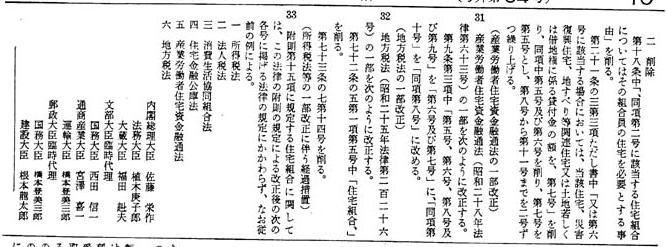 二 削除
第十八条中「、同項第二号に該当する住宅組合
についてはその組合員の住宅を必要とする事
由」を削る。
第二十一条の三第三項ただし書中「又は第六
号に該当する場合においては、当該住宅、災害
復興住宅、地すべり等関連住宅又は土地若しく
は借地権に係る貸付金の額を、第七号」を削
り、同項中第五号及び第六号を削り、第七号を
第五号とし、第八号から第十一号までを二号ず
つ繰り上げる。
(産業労働者住宅資金融通法の一部改正)
31 産業労働者住宅資金融通法(昭和二十八年法
律第六十三号)の一部を次のように改正する。
第九条第三項中「第五号、第六号、第八号及
び第九号」を「第六号及び第七号」に、「同項第
十号」を「同項第八号」に改める。
(地方税法の一部改正)
32 地方税法(昭和二十五年法律第二百二十六
号)の一部を次のように改正する。
第七十二条の五第一項第五号中「住宅組合、」
を削る。
第七十三条の七第十四号を削る。
(所得税法等の一部改正に伴う経過措置)
33 附則第十五項に規定する住宅組合に関して
は、この法律の附則の規定による改正後の次の
各号に掲げる法律の規定にかかわらず、なお従
前の例による。
一 所得税法
二 法人税法
三 消費生活協同組合法
四 住宅金融公庫法
五 産業労働者住宅資金融通法
六 地方税法
内閣総理大臣 佐藤 栄作
法務大臣 植木庚子郎
大蔵大臣 福田 赳夫
文部大臣臨時代理
国務大臣 西田 信一
通商産業大臣 宮澤 喜一
運輸大臣 橋本登美三郎
郵政大臣臨時代理
国務大臣 橋本登美三郎
建設大臣 根本龍太郎